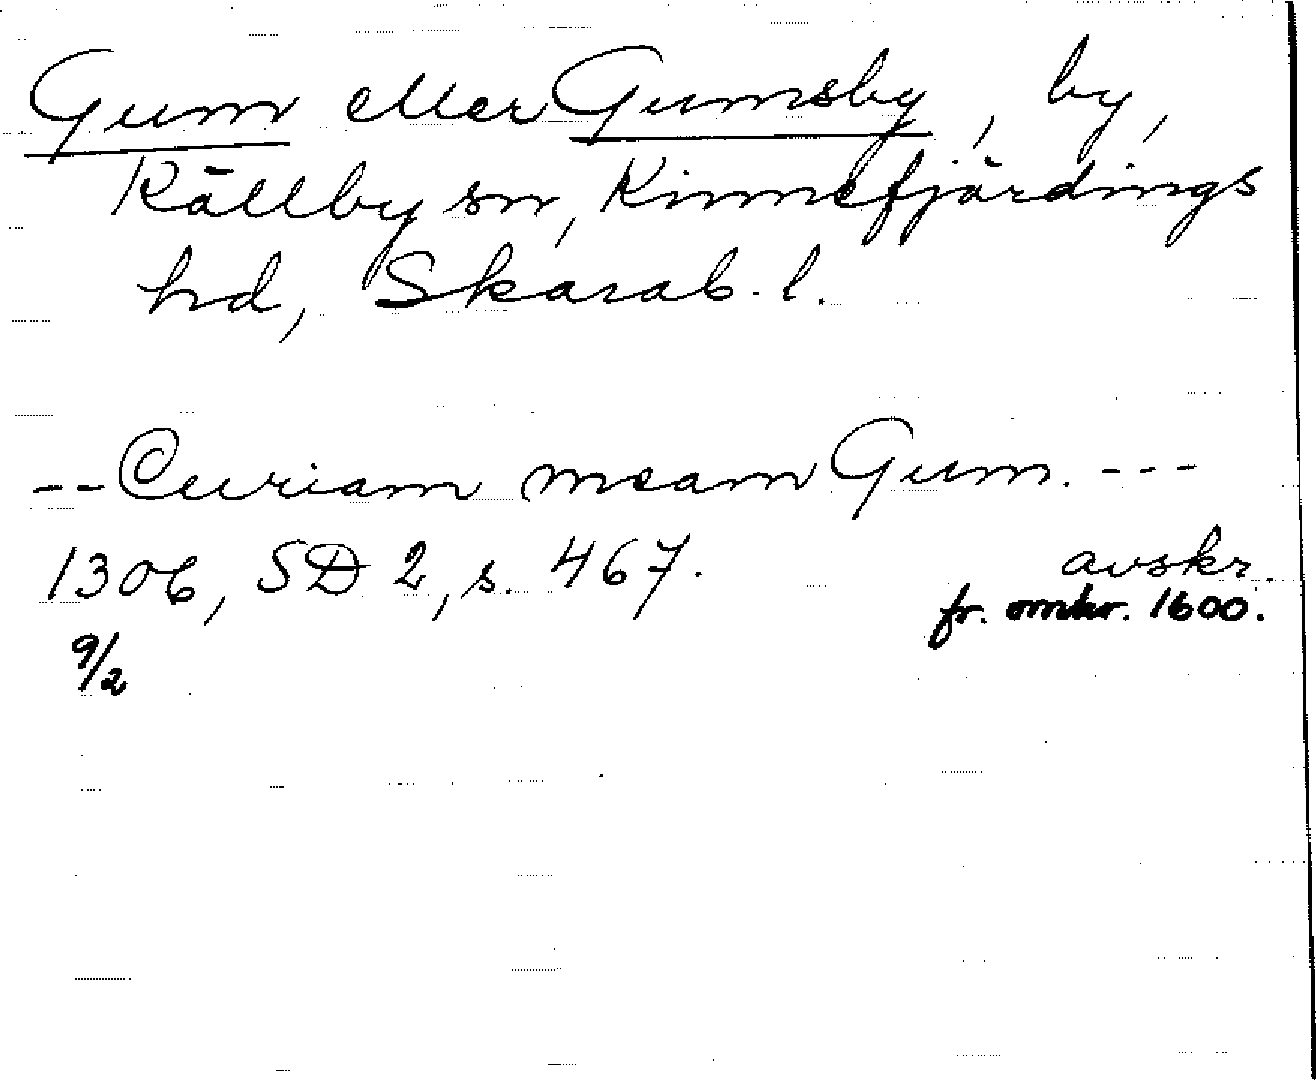 Gum eller Gumsby, by,
Källby sn, Kinnefjärdings
hd, Skarab. l.
-- Curiam meam Gum. ---
1306, SD 2, s. 467. avskr.
fr. omkr. 1600.
9/2